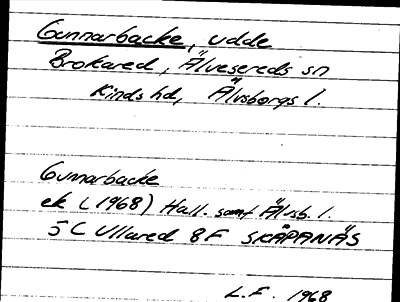 Gunnarbacke, udde
Brokared, Älvsereds sn
Kinds hd, Älvsborgs l.
Gunnarbacke
ek (1968) Hall. samt Älvsb. l.
5 C Ullared 8 F SKÅPANÄS
L.F. 1968